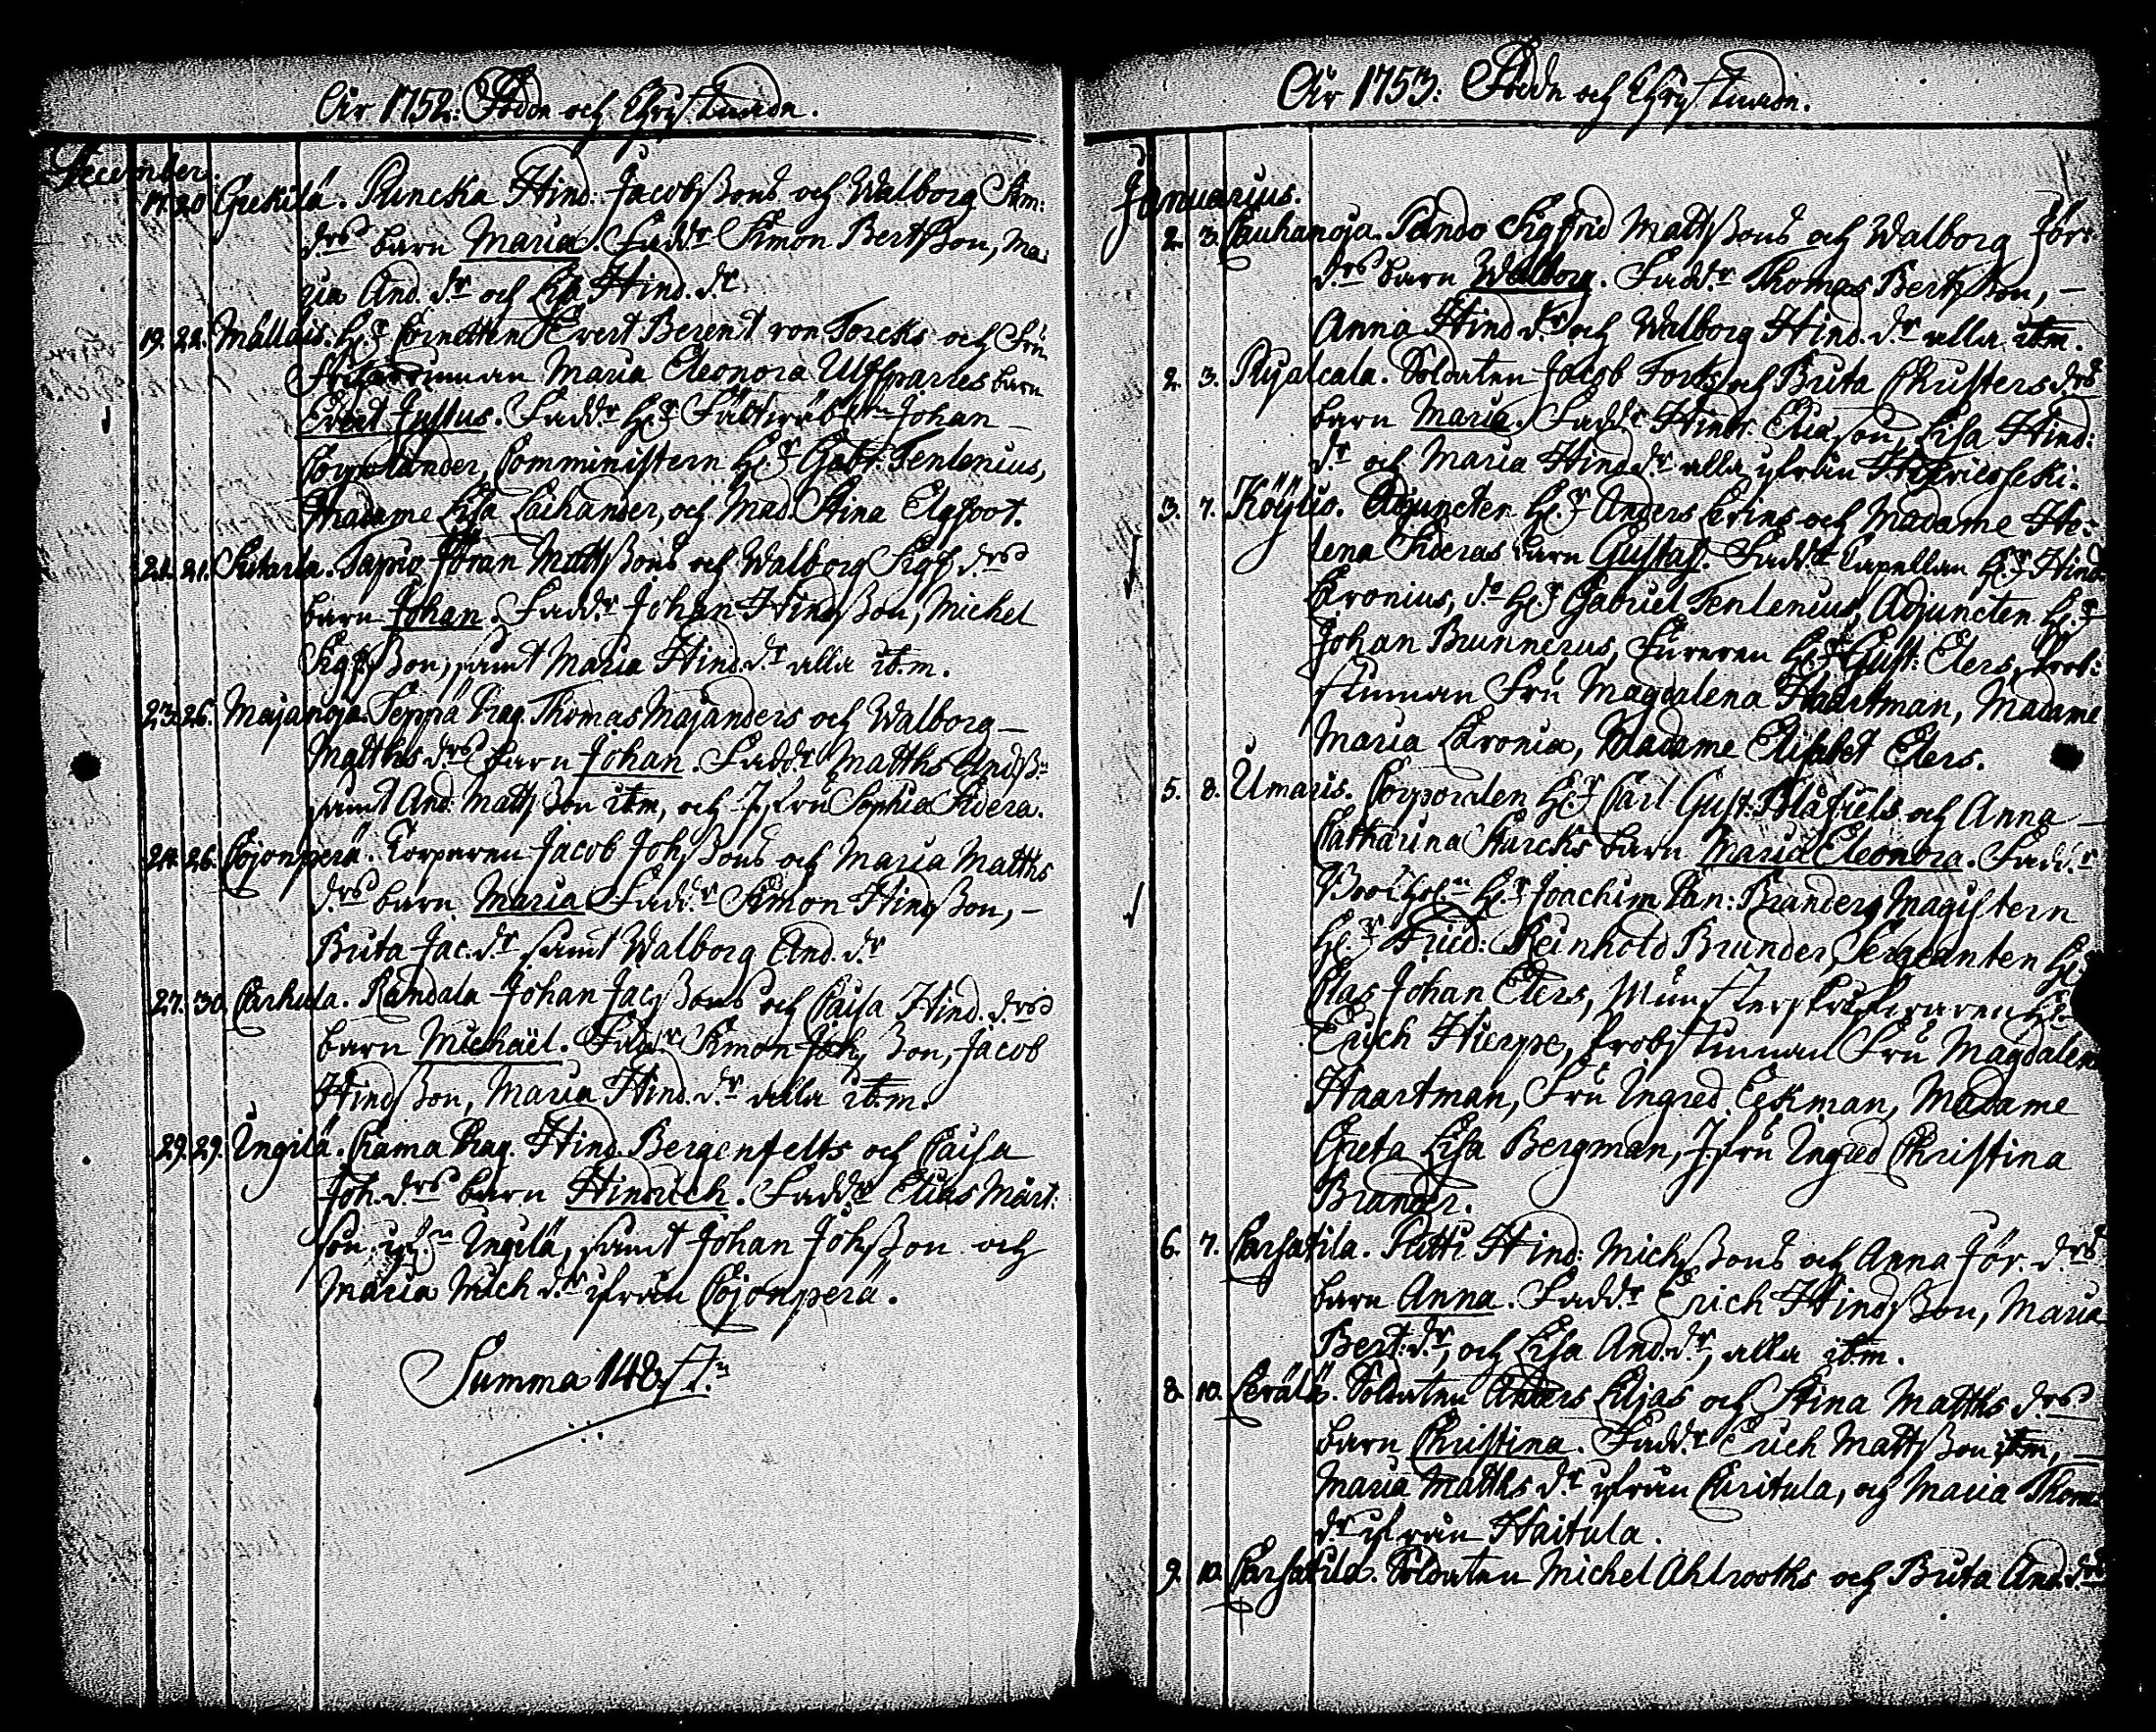 Åhr 1752. Födde och Christnade.
December.
17. 20 Gunnilä. Runcka Hind: Jacobßons och Walborg Sim:
d:rs barn Maria. Fadd:r Simon Bertßon, Ma-
ria And. d:r och Lisa Hind. d:r
19. 22. Mallais. H:r Cornetten Evert Berent von Torcks och Fru
Maria Eleonora Ulfsparres barn
Evert Justus. Fadd:r H:r Johan
Corpolander, Comministern H:r Gabr: Tenlenius,
Madame Lisa Laihander, och Mad. Stina Elgfoot.
21. 21. Tapio Jöran Mattßons och Walborg Sigf. d:rs
barn Johan. Fadd:r Johan Hindßon, Michel
Sigfßon, samt Maria Hind. d:r alla ib:m.
23. 26. Majanoja. Seppä Drag. Thomas Majanders och Walborg
Matths d:rs barn Johan. Fadd:r Matths Andß:n
samt And: Mattßon ib:m, och Jfru Sophia Sidera.
24. 26. Cojonperä. Torparen Jacob Johßons och Maria Matths
d:rs barn Maria. Fadd:r Simon Hindßon, –
Brita Jac. d:r samt Walborg And. d:r
27. 30. Carhula. Randala Johan Jacßons och Caisa Hind. d:rs
barn Michaël. Fadd:r Simon Johßon, Jacob
Hindßon, Maria Hind. d:r alla ib:m.
29. 29. Ungilä. Crama Drag. Hind. Bergenfelts och Caisa
Joh. d:rs barn Hindrich. Fadd:r Elias Märt:
son Ungilä, samt Johan Johßon och
Maria Mich. d:r ifrån Cojonperä.
Summa 148 st:n
Åhr 1753. Födde och Christnade.
Januarius.
2. 3. Cauhanoja. Pando Sigfrid Mattßons och Walborg Jör:
d:rs barn Walborg. Fadd:r Thomas Bertßon, –
Anna Hind d:r och Walborg Hind. d:r alla ib:m.
2. 3. Ryalcala. Soldaten Jacob Forts och Brita Christers d:rs
barn Maria. Fadd:r Hindr. Eriason, Lisa Hind:
d:r och Maria Hind d:r alla ifrån
3. 7. Köyliö. Adjuncten H:r Anders Lerins och Madame He-
lena Sideras barn Gustaf. Fadd:r Capellan H:r Hind.
Aronius, d:o H:r Gabriel Tenlenius, Adjuncten H:r
Johan Brunnerus, Fureren H:r Gust: Elers, Prob-
stinnan Fru Magdalena Haartman, Madame
Maria Aronia, Madame Elisabet Elers.
5. 8. Umaris. Corporalen H:r Carl Gust. Blåfiels och Anna
Catharina Starcks barn Maria Eleonora. Fadd:r
H:r Joachim Branders Magistern
H:r Fried: Reinhold Brander, Sergeanten H:r
Clas Johan Elers, Münsterskrifvaren H:r
Erich Hierpe, Probstinnan Fru Magdalena
Haartman, Fru Ingred Eckman, Madame
Greta Lisa Bergman, Jfru Ingred Christina
Brander.
6. 7. Carsatila. Putti Hind: Michßons och Anna Jör. d:rs
barn Anna. Fadd:r Erich Hindßon, Maria
Bert: d:r, och Lisa And. d:r, alla ib:m.
8. 10. Perälä. Soldaten Anders Lijas och Stina Matths d:rs
barn Christina. Fadd:r Erich Mattßon ib:m, –
Maria Matths d:r ifrån Curitula, och Maria Thom.
d:r ifrån Haitula.
9. 10. Carsatila. Soldaten Michel Ahlrooths och Brita And. d:rs